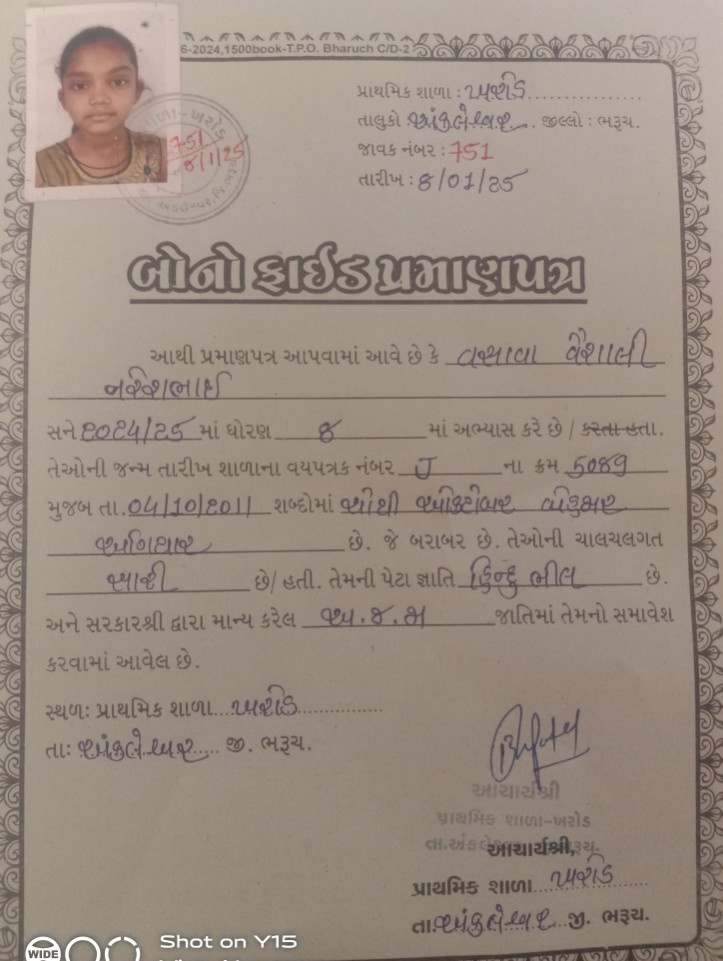 6-2024,1500book-T.P.O. Bharuch C/D-2
પ્રાથમિક શાળા : ખરોડ
તાલુકો અંકલેશ્વર. જીલ્લો : ભરૂચ.
જાવક નંબર : 751
તારીખ : 8/01/25
શાળા-ખરોડ
751
8/1/25
બોનોફાઈડ પ્રમાણપત્ર
આથી પ્રમાણપત્ર આપવામાં આવે છે કે વસાવા વૈશાલી
નરેશભાઈ
સને 2024/25 માં ધોરણ 8 માં અભ્યાસ કરે છે / કરતા હતા.
તેઓની જન્મ તારીખ શાળાના વયપત્રક નંબર J ના ક્રમ 5089
મુજબ તા. 04/10/2011 શબ્દોમાં ચોથી ઓક્ટોબર બેહજાર
અગિયાર છે. જે બરાબર છે. તેઓની ચાલચલગત
સારી છે/ હતી. તેમની પેટા જ્ઞાતિ હિન્દુ ભીલ છે.
અને સરકારશ્રી દ્વારા માન્ય કરેલ અ.જ.જા જાતિમાં તેમનો સમાવેશ
કરવામાં આવેલ છે.
સ્થળ: પ્રાથમિક શાળા ખરોડ
તા: અંકલેશ્વર જી. ભરૂચ.
આચાર્યશ્રી
પ્રાથમિક શાળા-ખરોડ
તા.અંકલે
આચાર્યશ્રી,
પ્રાથમિક શાળા ખરોડ
તા. અંકલેશ્વર જી. ભરૂચ.
WIDE
Shot on Y15